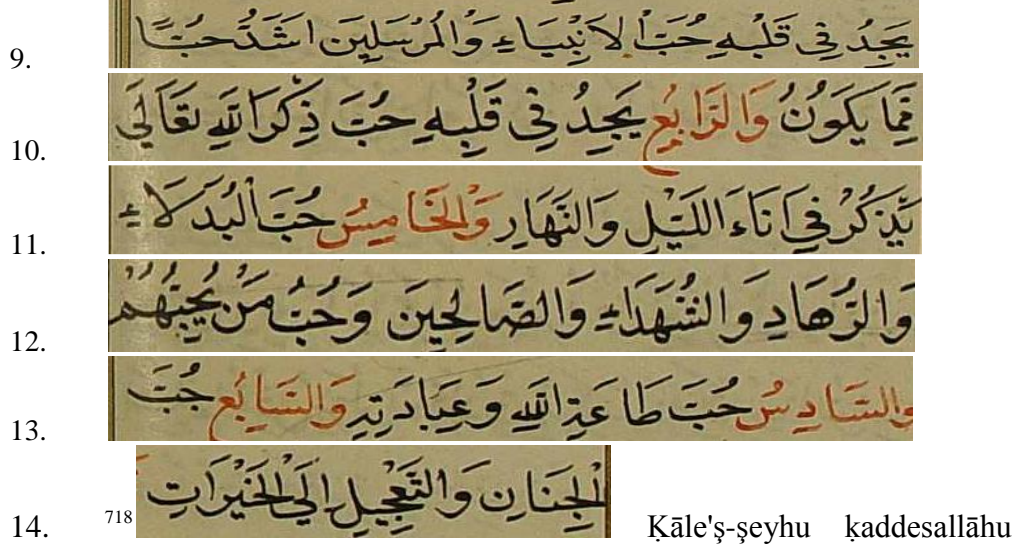 9. يَجِدُ فِي قَلْبِهِ حُبَّ الاَنْبِيَاءِ وَالْمُرْسَلِينَ اَشَدُّ حُبًّا
10. مِمَّا يَكُونُ وَالرَّابِعُ يَجِدُ فِي قَلْبِهِ حُبَّ ذِكْرِ اللهِ تَعَالَي
11. يَذْكُرُ فِي اَنَاءَ اللَّيْلِ وَالنَّهَارِ وَالْخَامِيسُ حُبَّ الْبُدَلَاءِ
12. وَالزُّهَادِ وَالشُّهَدَاءِ وَالصَّالِحِينَ وَحُبُّ مَنْ يُحِبُّهُمْ
13. وَالسَّادِسُ حُبَّ طَاعَةِ اللهِ وَعِبَادَتِهِ وَالسَّابِعُ حُبَّ
14. الْجِنَانِ وَالتَّعْجِيلِ اِلَي الْخَيْرَاتِ 718 Ḳāle'ş-şeyhu ḳaddesallāhu